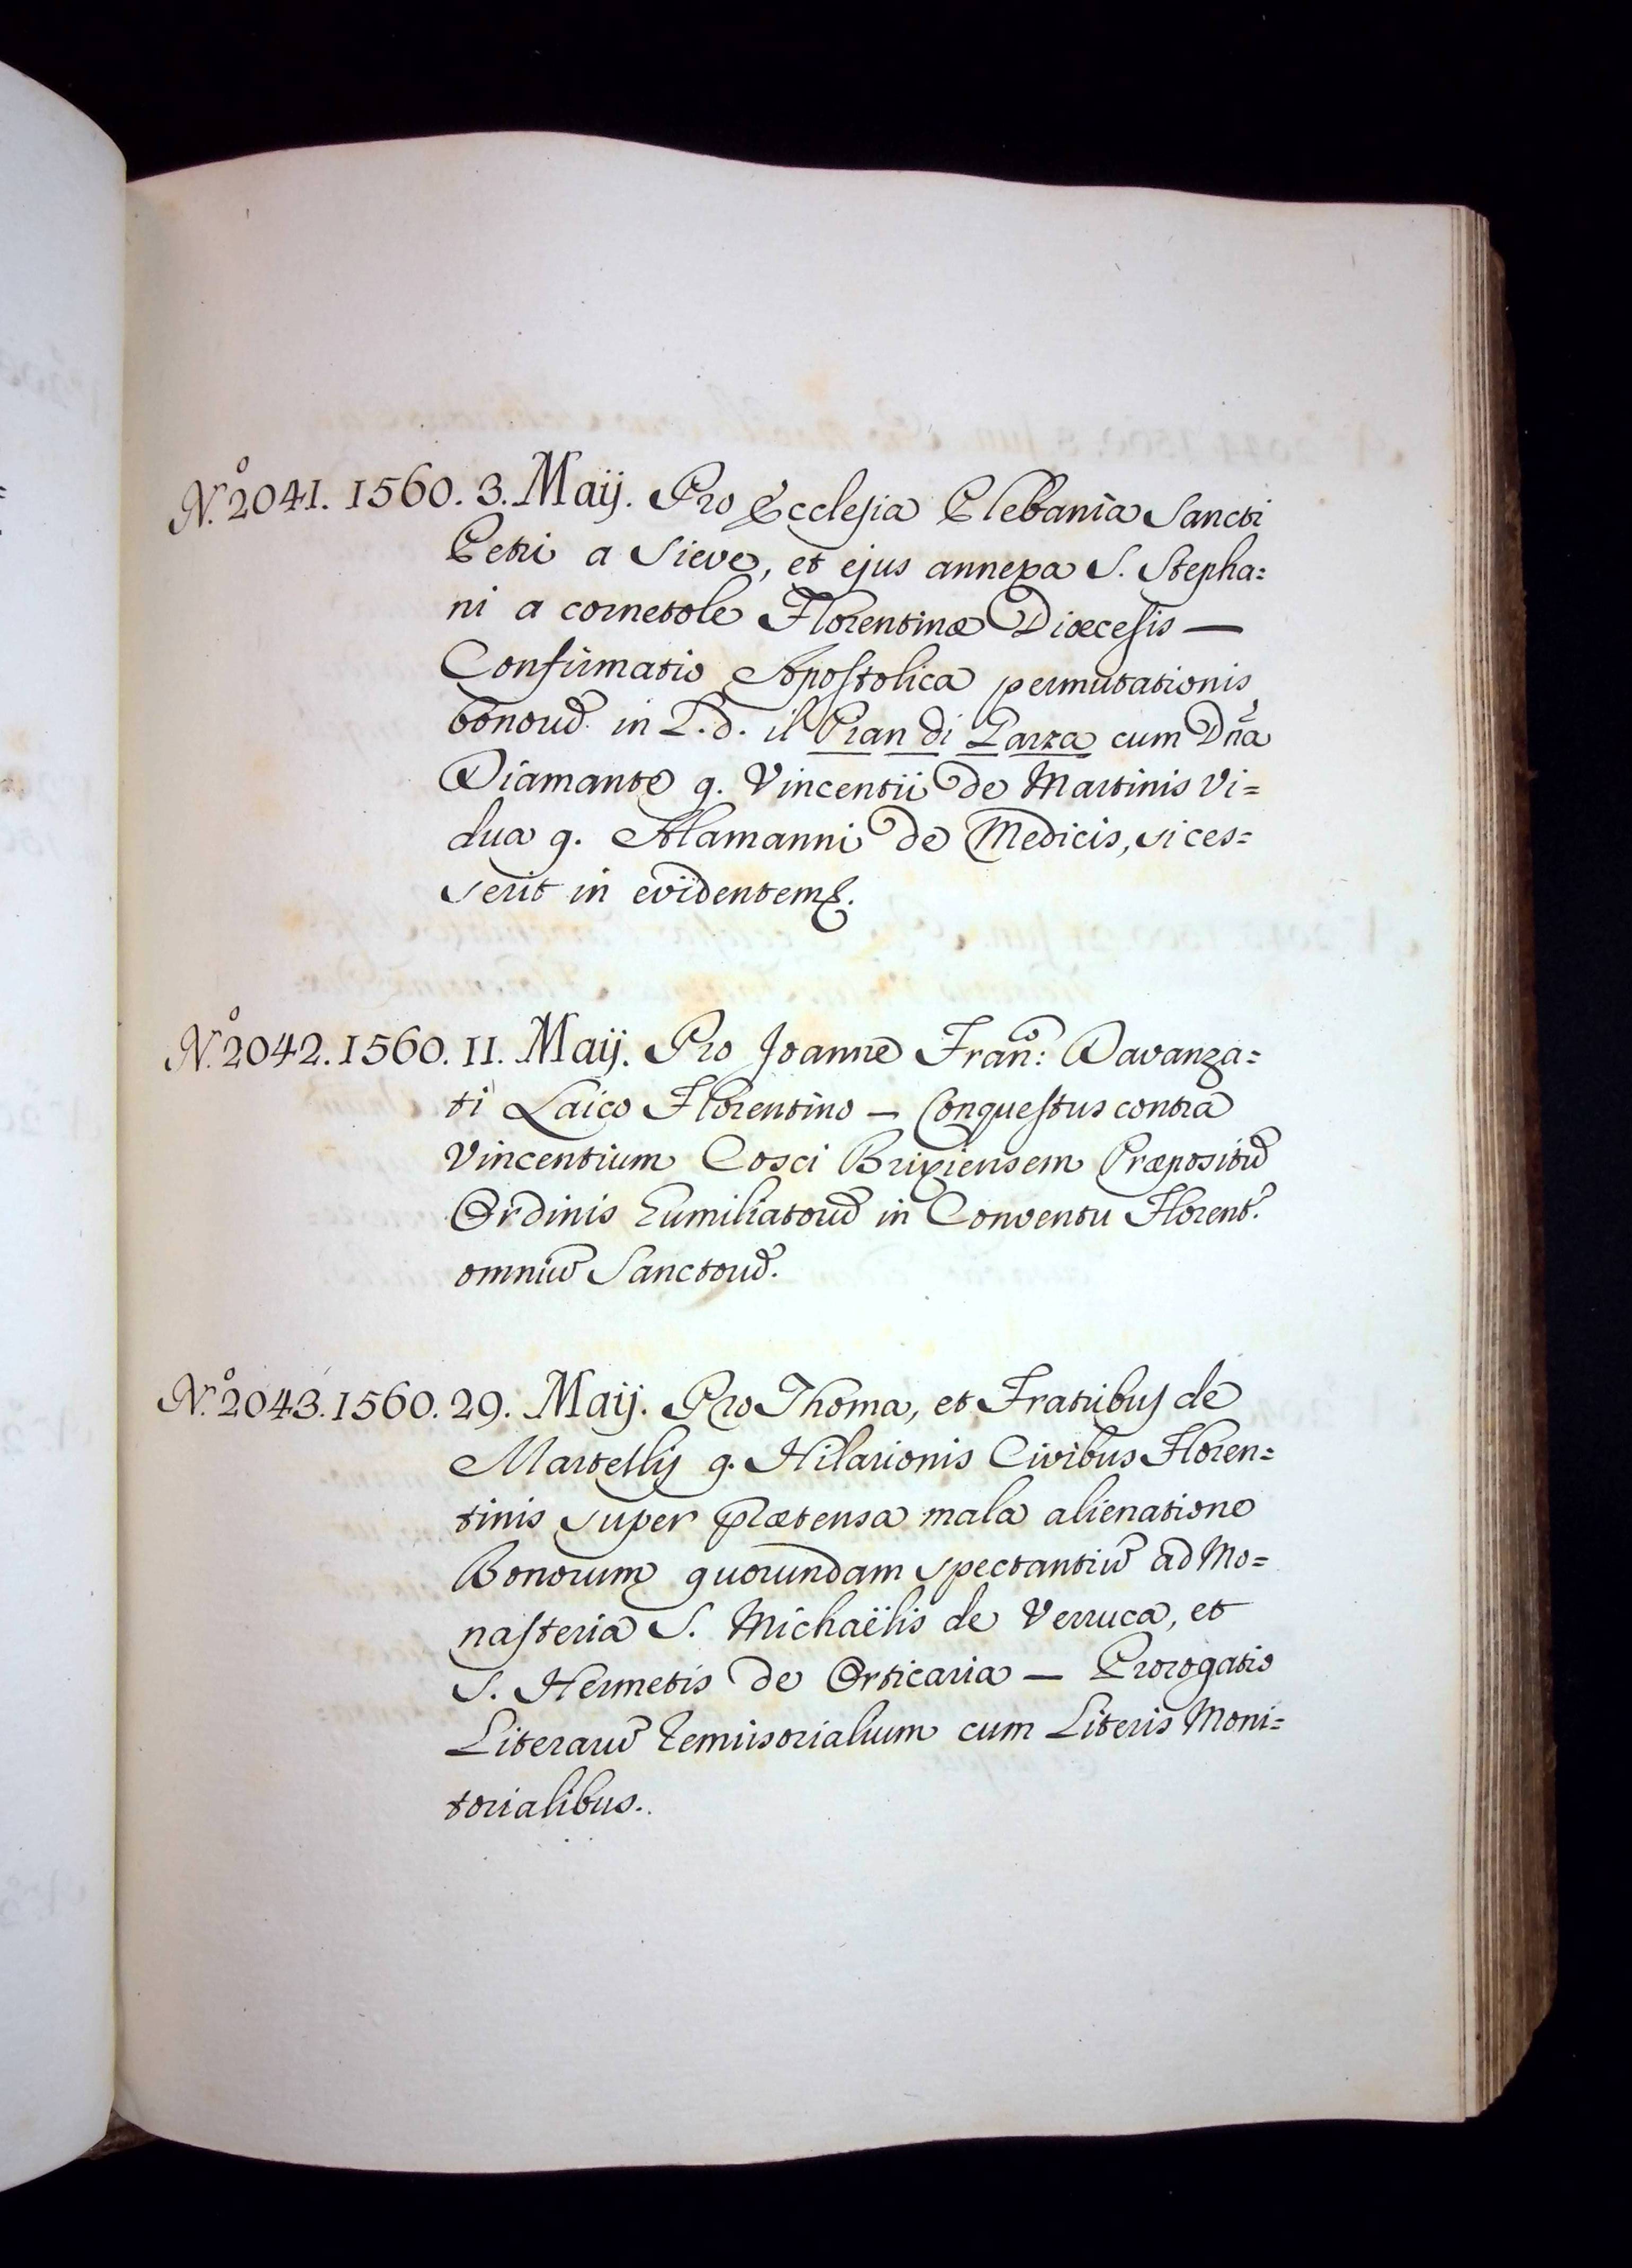 N.º 2041. 1560. 3. Maij. Pro Ecclesia Plebania Sancti
Petri a Sieve, et ejus annexa S. Stepha=
ni a cornetole Florentinæ Diœcesis —
Confirmatio Apostolica permutationis
bonoru̅ in L. d. il Pian di Larza cum Dn̅a
Diamante q. Vincentii de Martinis Vi=
dua q. Alamanni de Medicis, si ces=
serit in evidentem &.
N.º 2042. 1560. 11. Maij. Pro Joanne Fran.º: Davanza=
ti Laico Florentino — Conquestus contra
Vincentium Cosci Brixiensem Præpositu̅
Ordinis Humiliatoru̅ in Conventu Florent.
omniu̅ Sanctoru̅.
N.º 2043. 1560. 29. Maij. Pro Thoma, et Fratribus de
Martellij q. Hilarionis Civibus Floren=
tinis super prætensa mala alienatione
Bonorum quorundam spectantiu̅ ad Mo=
nasteria S. Michaëlis de Verruca, et
S. Hermetis de Orticaria — Prorogatio
Literaru̅ Remissorialium cum Literis Moni=
torialibus.